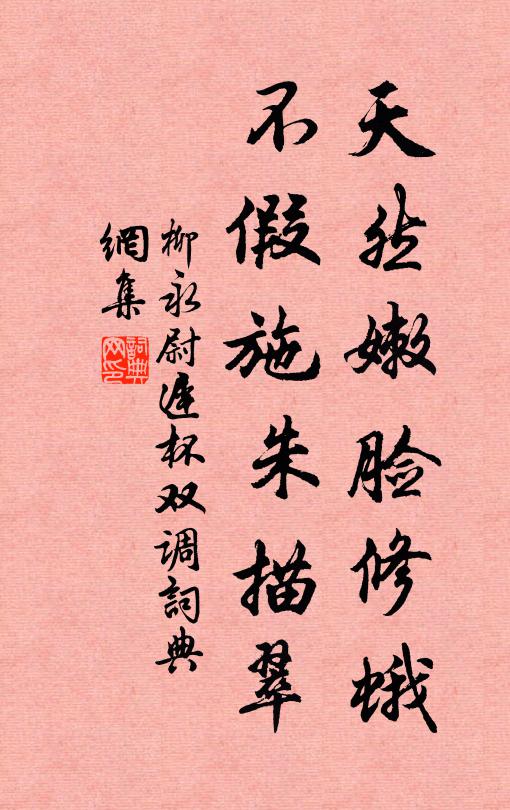 天然嫩脸修蛾
不假施朱描翠
柳永尉遲杯双调詞典
網集
詞典
网印